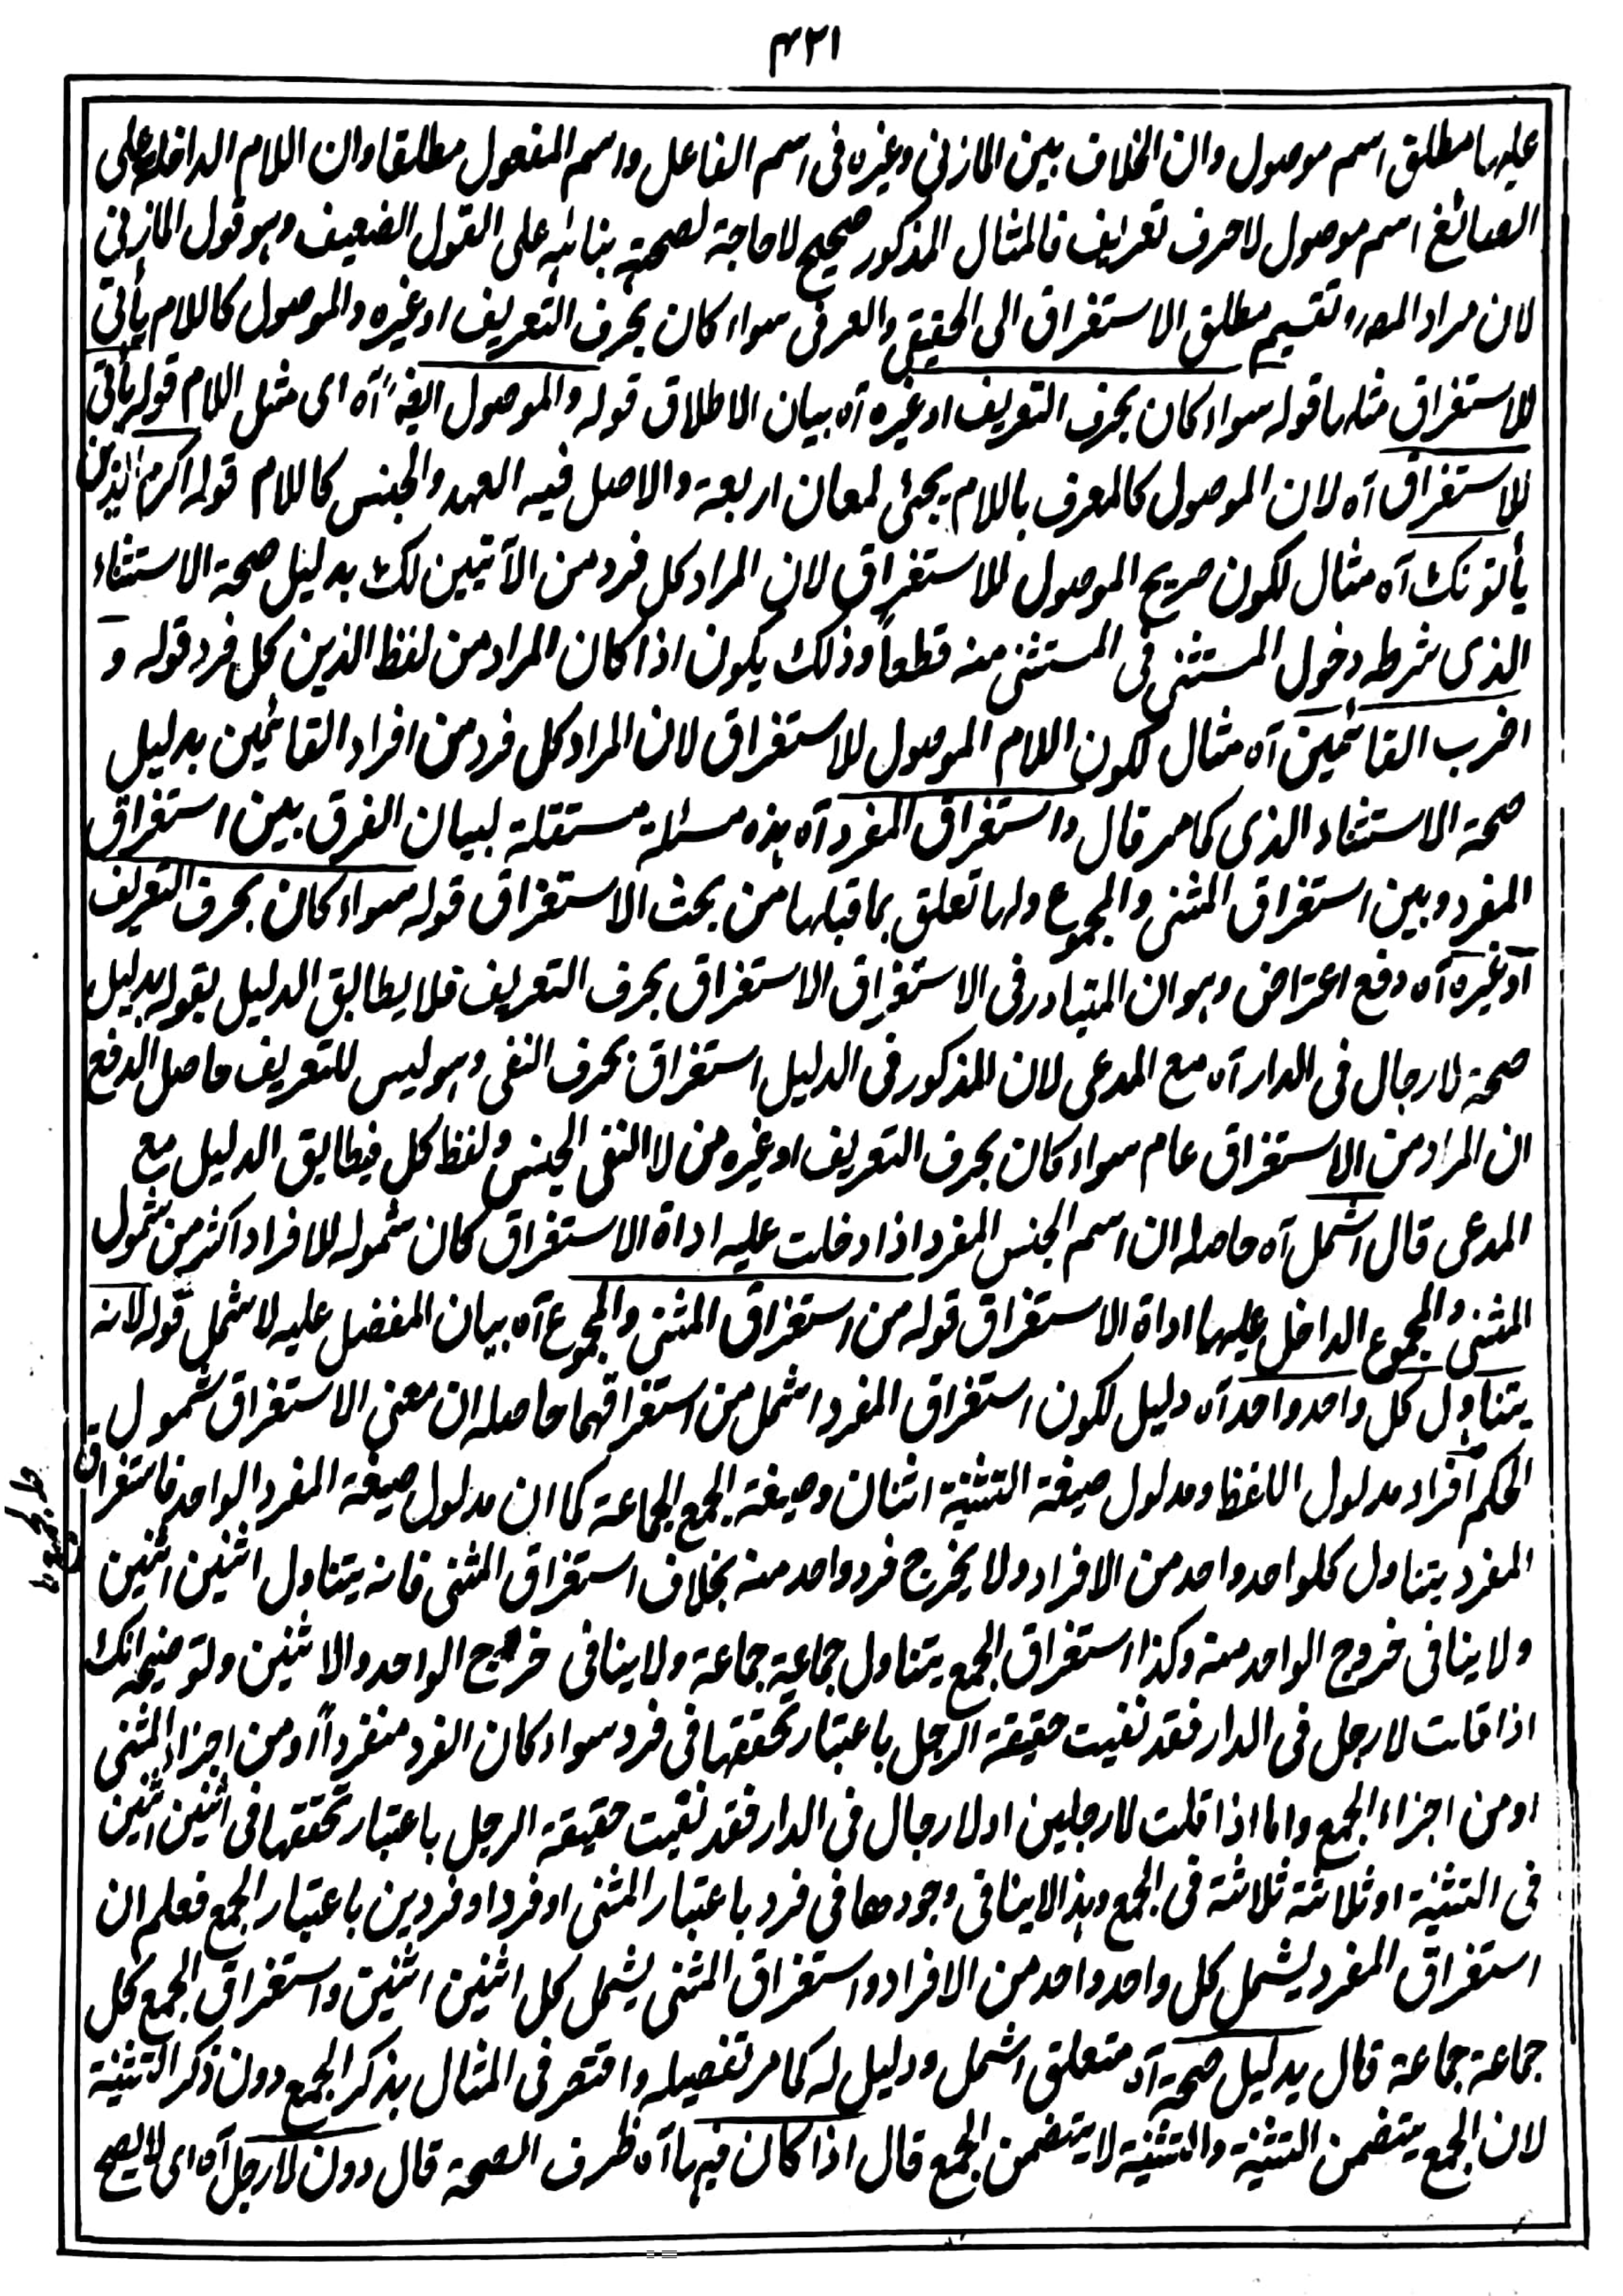 ٤٣١
عليها مطلق اسم موصول وان الخلاف بين المازنى وغيره فى اسم الفاعل واسم المفعول مطلقا وان اللام الداخلة على
الصائغ اسم موصول لا حرف تعريف فالمثال المذكور صحيح لا حاجة لصحته بنائه على القول الضعيف وهو قول المازنى
لان مراد المصـ رو تقسيم مطلق الاستغراق الى الحقيقى والعرفى سواء كان بحرف التعريف او غيره والموصول كاللام يأتى
للاستغراق مثلها قوله سواء كان بحرف التعريف او غيره آه بيان الاطلاق قوله والموصول ايضا آه اى مثل اللام قوله يأتى
للاستغراق آه لان الموصول كالمعرف باللام يجئ لمعان اربعة والاصل فيه العهد والجنس كاللام قوله اكرم الذين
يأتونك آه مثال لكون صريح الموصول للاستغراق لان المراد كل فرد من الآتيين لك بدليل صحة الاستثناء
الذى شرطه دخول المستثنى فى المستثنى منه قطعاً وذلك يكون اذا كان المراد من لفظ الذين كل فرد قوله و
اضرب القائمين آه مثال لكون اللام الموصول للاستغراق لان المراد كل فرد من افراد القائمين بدليل
صحة الاستثناء الذى كما مر قال واستغراق المفرد آه هذه مسئلة مستقلة لبيان الفرق بين استغراق
المفرد وبين استغراق المثنى والمجموع ولها تعلق بما قبلها من بحث الاستغراق قوله سواء كان بحرف التعريف
او غيره آه دفع اعتراض وهو ان المتبادر فى الاستغراق الاستغراق بحرف التعريف فلا يطابق الدليل بقوله بدليل
صحة لا رجال فى الدار آه مع المدعى لان المذكور فى الدليل استغراق بحرف النفى وهو ليس للتعريف حاصل الدفع
ان المراد من الاستغراق عام سواء كان بحرف التعريف او غيره من لا النفى الجنس ولفظ كل فيطابق الدليل مع
المدعى قال اشمل آه حاصله ان اسم الجنس المفرد اذا دخلت عليه اداة الاستغراق كان شموله للافراد اكثر من شمول
المثنى والمجموع الداخل عليها اداة الاستغراق قوله من استغراق المثنى والمجموع آه بيان المفضل عليه لاشمل قوله لانه
يتناول كل واحد واحد آه دليل لكون استغراق المفرد اشمل من استغراقهما حاصله ان معنى الاستغراق شمول
الحكم افراد مدلول اللفظ ومدلول صيغة التثنية اثنان وصيغة الجمع الجماعة كما ان مدلول صيغة المفرد الواحد فاستغراق
المفرد يتناول كلواحد واحد من الافراد ولا يخرج فرد واحد منه بخلاف استغراق المثنى فانه يتناول اثنين اثنين
ولا ينافى خروج الواحد منه وكذا استغراق الجمع يتناول جماعة جماعة ولا ينافى خروج الواحد والاثنين وتوضيحه انك
اذا قلت لا رجل فى الدار فقد نفيت حقيقة الرجل باعتبار تحققها فى فرد سواء كان الفرد منفرداً او من اجزاء المثنى
او من اجزاء الجمع واما اذا قلت لا رجلين او لا رجال فى الدار فقد نفيت حقيقة الرجل باعتبار تحققها فى اثنين اثنين
فى التثنية او ثلاثة ثلاثة فى الجمع وهذا لا ينافى وجودها فى فرد باعتبار المثنى او فرد او فردين باعتبار الجمع فعلم ان
استغراق المفرد يشمل كل واحد واحد من الافراد واستغراق المثنى يشمل كل اثنين اثنين واستغراق الجمع كل
جماعة جماعة قال بدليل صحة آه متعلق اشمل ودليل له كما مر تفصيله واقتصر فى المثال بذكر الجمع دون ذكر التثنية
لان الجمع يتضمن التثنية والتثنية لا يتضمن الجمع قال اذا كان فيها آه ظرف الصحة قال دون لا رجل آه اى لا يصح